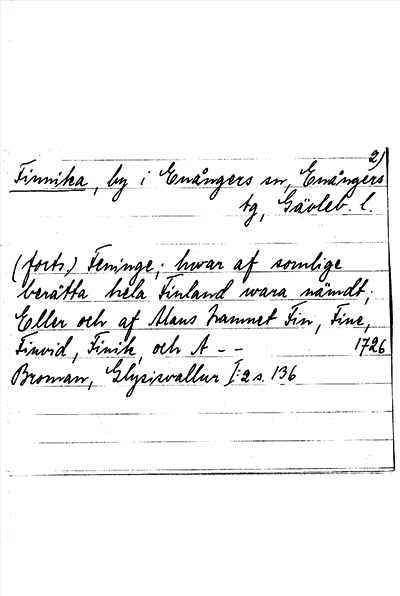 2)
Finnika, by i Enångers sn, Enångers
tg, Gävleb. l.
(forts.) Feninge; hwar af somlige
berätta hela Finland wara nämdt;
Eller och af Mans namnet Fin, Fine,
Finvid, Finik, och A - - 1726
Broman, Glysisvallur I:2 s. 136